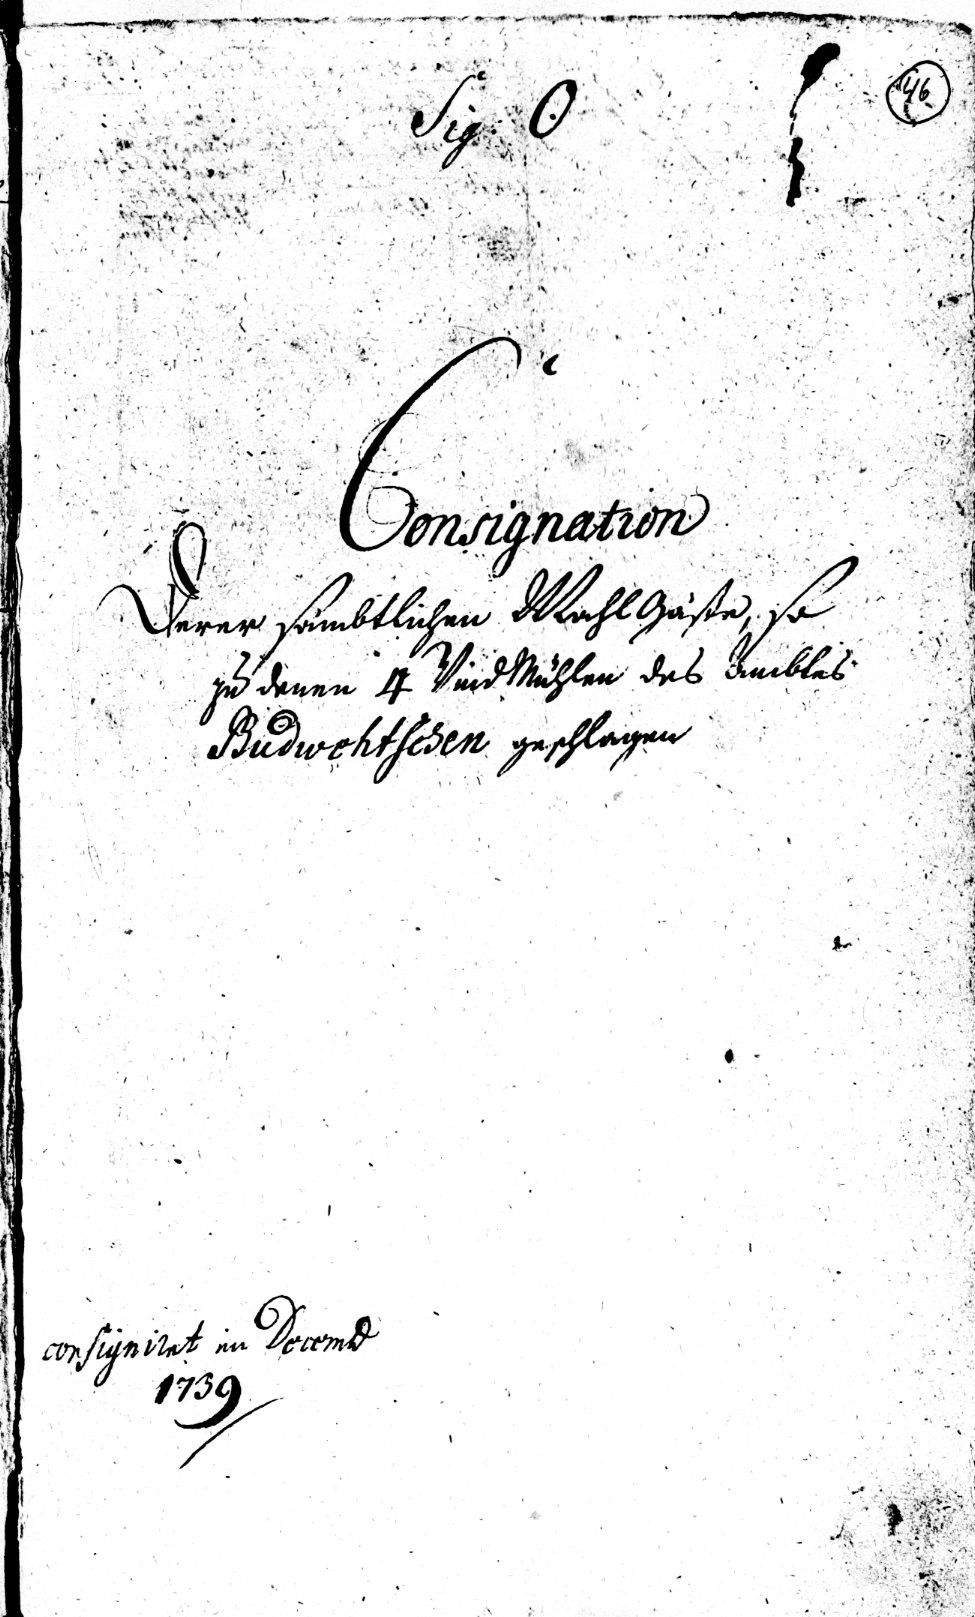 46
Sig. O.
Consignation
Derer sämbtlichen Mahl Gäste, so
zu denen 4 Wind Mühlen des Ambtes
Budwehtschen geschlagen
consigniret im Decembr
1739